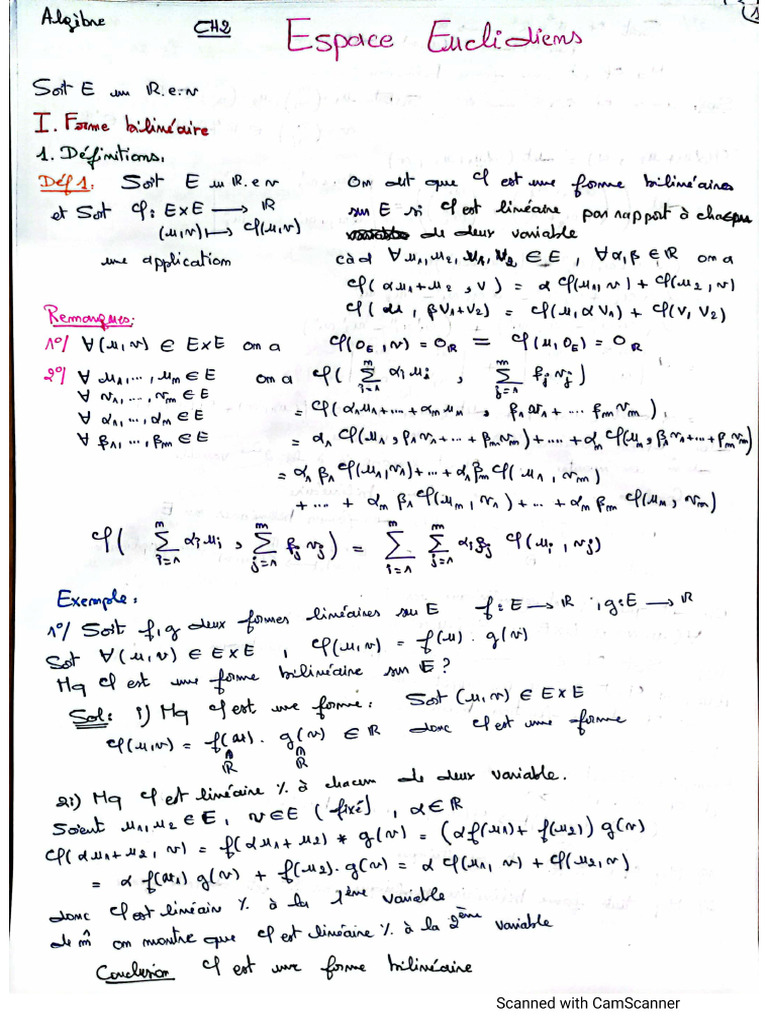 Algèbre CH2 Espace Euclidiens
Soit E un R.e.v
I. Forme bilinéaire
1. Définitions.
Déf 1: Soit E un R.e.v
et Soit φ: E×E → R
(u,v) ↦ φ(u,v)
une application
On dit que φ est une forme bilinéaires
sur E si φ est linéaire par rapport à chaque
de deux variable
càd ∀ u₁, u₂, v₁, v₂ ∈ E, ∀ α, β ∈ R on a
φ(αu₁+u₂, v) = α φ(u₁,v) + φ(u₂,v)
φ(u, βv₁+v₂) = φ(u, αv₁) + φ(v, v₂)
Remarques:
1°/ ∀(u,v) ∈ E×E on a φ(0_E, v) = 0_R = φ(u, 0_E) = 0_R
2°/ ∀ u₁, ..., u_m ∈ E on a φ(∑_{i=1}^{m} αᵢuᵢ, ∑_{j=1}^{m} βⱼvⱼ)
∀ v₁, ..., v_m ∈ E = φ(α₁u₁+...+α_m u_m, β₁v₁+... β_m v_m),
∀ α₁, ..., α_m ∈ E = α₁ φ(u₁, β₁v₁+...+β_m v_m)+....+α_m φ(u_m, β₁v₁+...+β_m v_m)
∀ β₁, ..., β_m ∈ E
= α₁β₁ φ(u₁,v₁)+...+α₁β_m φ(u₁, v_m)
+...+ α_m β₁ φ(u_m, v₁)+...+α_m β_m φ(u_m, v_m)
φ(∑_{i=1}^{m} αᵢuᵢ, ∑_{j=1}^{m} βⱼvⱼ) = ∑_{i=1}^{m} ∑_{j=1}^{m} αᵢβⱼ φ(uᵢ, vⱼ)
Exemple:
1°/ Soit f,g deux formes linéaires sur E f: E → R ; g: E → R
Soit ∀(u,v) ∈ E×E, φ(u,v) = f(u).g(v)
Mq φ est une forme bilinéaire sur E?
Sol: i) Mq φ est une forme: Soit (u,v) ∈ E×E
φ(u,v) = f(u). g(v) ∈ R donc φ est une forme
∩ ∩
R R
2i) Mq φ est linéaire % à chacun de deux variable.
Soient u₁, u₂ ∈ E, v ∈ E (fixé), α ∈ R
φ(αu₁+u₂, v) = f(αu₁+u₂) * g(v) = (αf(u₁)+ f(u₂)) g(v)
= α f(u₁) g(v) + f(u₂).g(v) = α φ(u₁, v) + φ(u₂,v)
donc φ est linéair % à la 1ère variable
de m̂ on montre que φ est linéaire % à la 2ème variable
Conclusion φ est une forme bilinéaire
Scanned with CamScanner